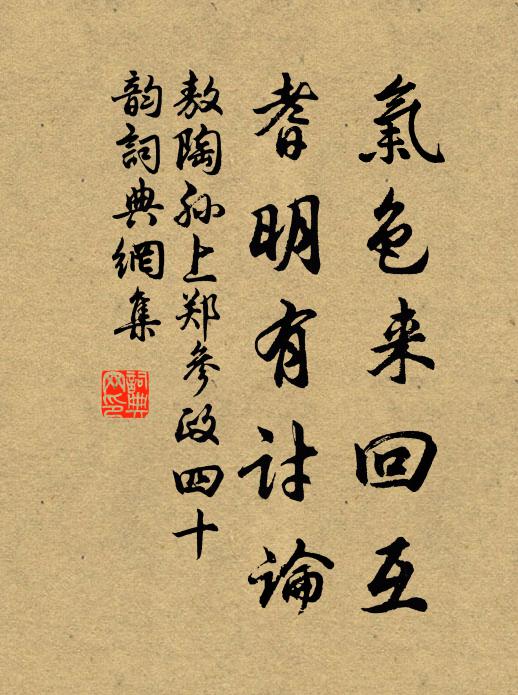 氣色来回互
耆明有討論
敖陶孙上郑參政四十
韵詞典網集
詞典
网印